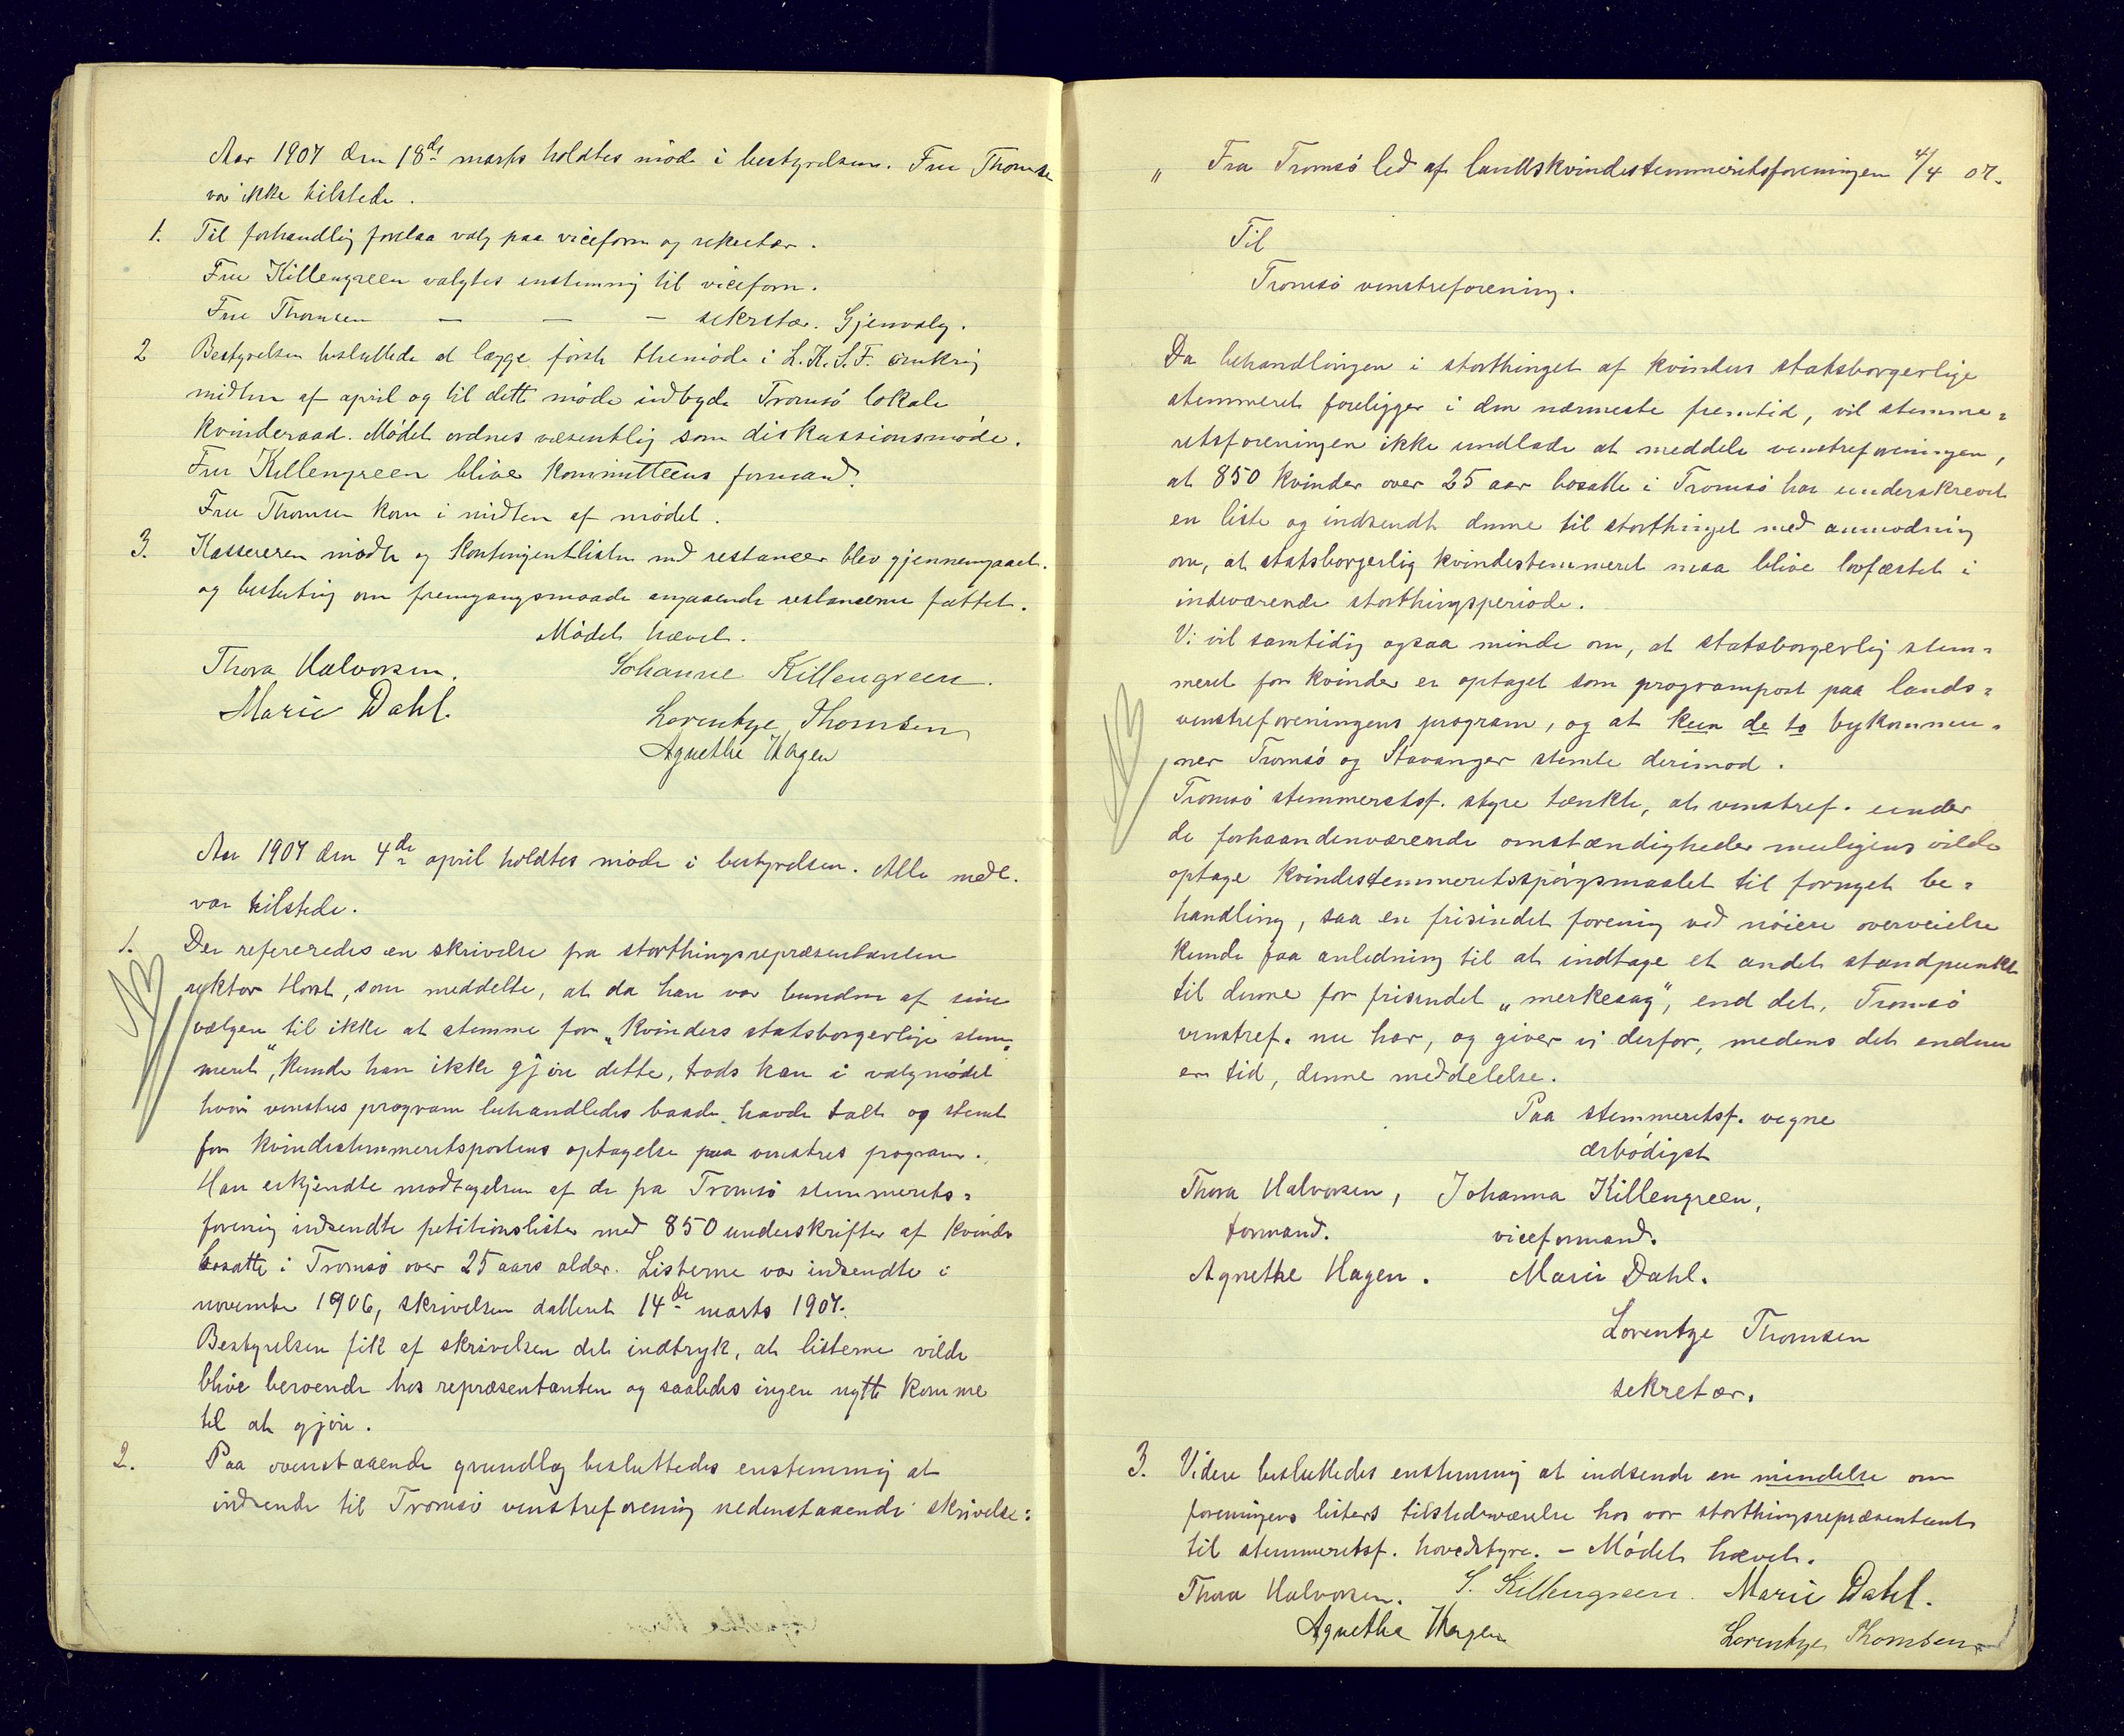 Aar 1907 den 18de marts holdtes møde i bestyrelsen. Fru Thomsen
var ikke tilstede.
1. Til forhandlig forelaa valg paa viceform og sekretær.
Fru Killengreen valgtes enstemmig til viceform.
Fru Thomsen — — — sekretær. Gjenvalg.
2 Bestyrelsen besluttede at lægge første themøde i L.K.S.F. omkrig
midten af april og til dette møde indbyde Tromsø lokale
kvinderaad. Mødet ordnes væsentlig som diskussionsmøde.
Fru Killengreen bliver kommitteens formand.
Fru Thomsen kom i midten af mødet.
3. Kassereren mødte og kontingentlisten med restancer blev gjennemgaaet.
og beslutnig om fremgangsmaade angaaende restancerne fattet.
Mødet hævet.
Thora Halvorsen. Johanne Killengreen.
Marie Dahl. Lorentze Thomsen
Agnethe Hagen
Aar 1907 den 4de april holdtes møde i bestyrelsen. Alle medl.
var tilstede.
1. Der refereredes en skrivelse fra storthingsrepræsentanten
rektor Horst, som meddelte, at da han var bunden af sine
vælgere til ikke at stemme for „kvinders statsborgerlige stem=
meret", kunde han ikke gjøre dette, trods han i valgmødet
hvori venstres program behandledes baade havde talt og stemt
for kvindestemmeretspostens optagelse paa venstres program.
Han erkjendte modtagelsen af de fra Tromsø stemmerets=
forenig indsendte petitionslister med 850 underskrifter af kvinder
bosatte i Tromsø over 25 aars alder. Listerne var indsendte i
november 1906, skrivelsen datteret 14de marts 1907.
Bestyrelsen fik af skrivelsen det indtryk, at listerne vilde
blive beroende hos repræsentanten og saaledes ingen nytte komme
til at gjøre.
2. Paa ovenstaaende grundlag besluttedes enstemmig at
indsende til Tromsø venstreforening nedenstaaende skrivelse:
„ Fra Tromsø led af landskvindestemmeretsforeningen 4/4 07.
Til
Tromsø venstreforening.
Da behandlingen i storthinget af kvinders statsborgerlige
stemmeret foreligger i den nærmeste fremtid, vil stemme=
retsforeningen ikke undlade at meddele venstreforeningen,
at 850 kvinder over 25 aar bosatte i Tromsø har underskrevet
en liste og indsendt denne til storthinget med anmodnig
om, at statsborgerlig kvindestemmeret maa blive lovfæstet i
indeværende storthingsperiode.
Vi vil samtidig ogsaa minde om, at statsborgerlig stem=
meret for kvinder er optaget som programpost paa lands=
venstreforeningens program, og at kun de to bykommu=
ner Tromsø og Stavanger stemte derimod.
Tromsø stemmeretsf. styre tænkte, at venstref. under
de forhaandenværende omstændigheder muligens vilde
optage kvindestemmeretsspørgsmaalet til fornyet be=
handling, saa en frisindet forenig ved nøiere overveielse
kunde faa anledning til at indtage et andet standpunkt
til denne for frisindet „merkesag", end det, Tromsø
venstref. nu har, og giver vi derfor, medens det endnu
er tid, denne meddelelse.
Paa stemmeretsf. vegne
ærbødigst
Thora Halvorsen, Johanna Killengreen,
formand. viceformand.
Agnethe Hagen. Marie Dahl.
Lorentze Thomsen
sekretær.
3. Videre besluttedes enstemmig at indsende en mindelse om
foreningens listers tilstedeværelse hos vor storthingsrepræsentant
til stemmeretsf. hovedstyre. – Mødet hævet.
Thora Halvorsen. J. Killengreen. Marie Dahl.
Agnethe Hagen Lorentze Thomsen